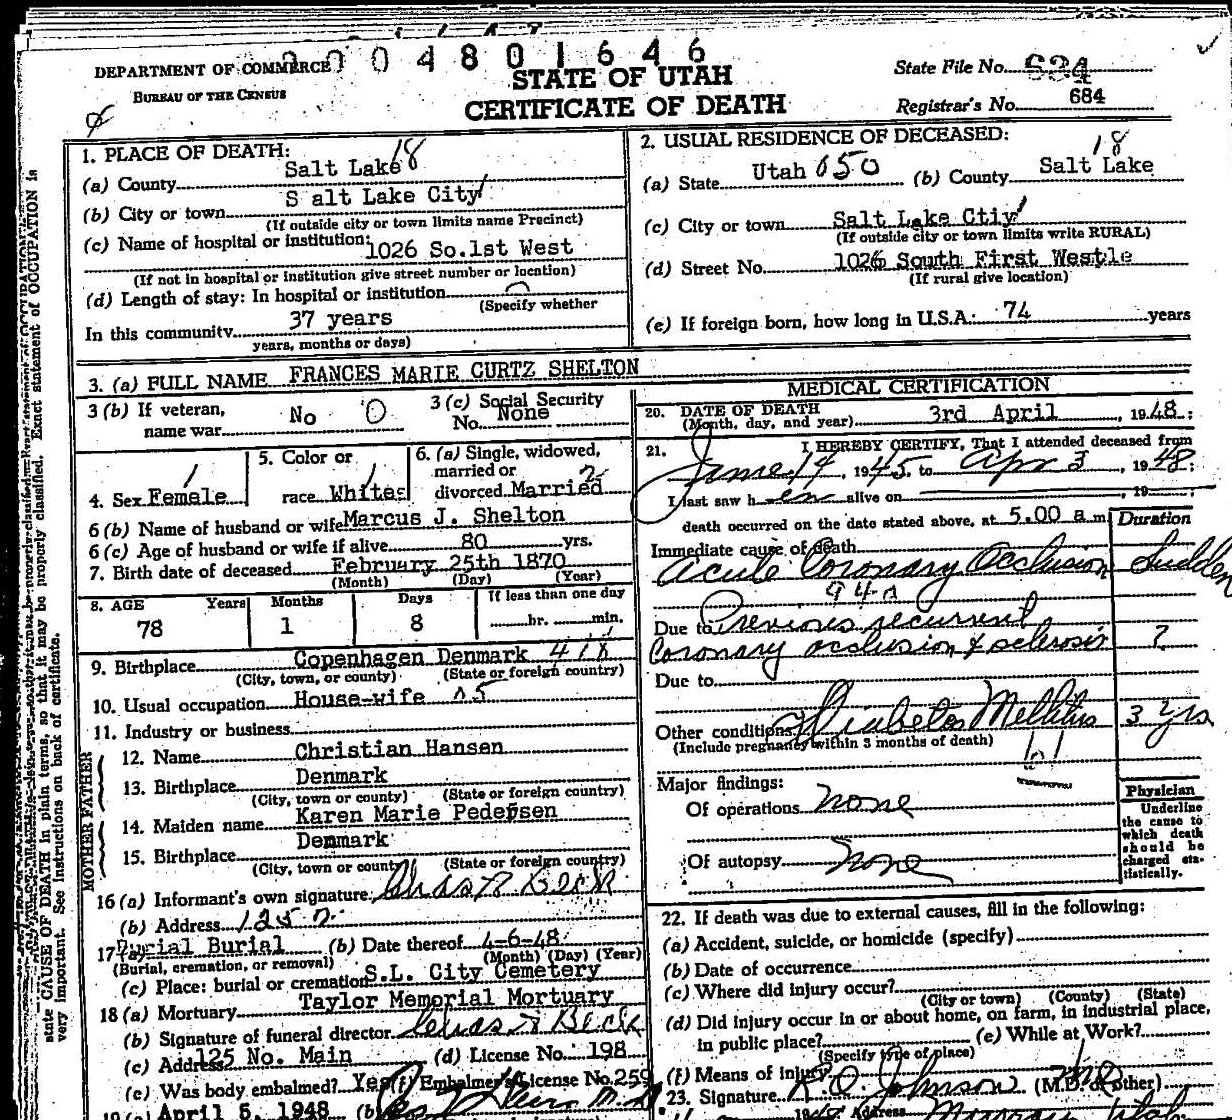 2004801646
DEPARTMENT OF COMMERCE
BUREAU OF THE CENSUS
STATE OF UTAH
CERTIFICATE OF DEATH
State File No. 684
Registrar's No. 684
1. PLACE OF DEATH:
(a) County Salt Lake 18
(b) City or town S alt Lake City
(If outside city or town limits name Precinct)
(c) Name of hospital or institution: 1026 So.1st West
(If not in hospital or institution give street number or location)
(d) Length of stay: In hospital or institution
(Specify whether
In this community 37 years
years, months or days)
2. USUAL RESIDENCE OF DECEASED:
(a) State Utah 650 (b) County Salt Lake 18
(c) City or town Salt Lake Ctiy
(If outside city or town limits write RURAL)
(d) Street No. 1026 South First Westle
(If rural give location)
(e) If foreign born, how long in U.S.A: 74 years
3. (a) FULL NAME FRANCES MARIE CURTZ SHELTON
3 (b) If veteran, name war No 0
3 (c) Social Security No. None
4. Sex Female 1
5. Color or race White 1
6. (a) Single, widowed, married or divorced Married 2
6 (b) Name of husband or wife Marcus J. Shelton
6 (c) Age of husband or wife if alive 80 yrs.
7. Birth date of deceased February 25th 1870
(Month) (Day) (Year)
8. AGE Years Months Days If less than one day
78 1 8 hr. min.
9. Birthplace Copenhagen Denmark 418
(City, town, or county) (State or foreign country)
10. Usual occupation House-wife
11. Industry or business
FATHER
12. Name Christian Hansen
13. Birthplace Denmark
(City, town or county) (State or foreign country)
MOTHER
14. Maiden name Karen Marie Pedersen
15. Birthplace Denmark
(City, town or county) (State or foreign country)
16 (a) Informant's own signature Chas R Beck
(b) Address 125 n.
17 (a) Burial Burial (b) Date thereof 4-6-48
(Burial, cremation, or removal) (Month) (Day) (Year)
(c) Place: burial or cremation S.L. City Cemetery
18 (a) Mortuary Taylor Memorial Mortuary
(b) Signature of funeral director Chas R Beck
(c) Add 125 No. Main (d) License No. 198
(e) Was body embalmed? Yes (f) Embalmer's License No. 259
19 (a) April 5, 1948 (b)
MEDICAL CERTIFICATION
20. DATE OF DEATH 3rd April, 1948;
(Month, day, and year)
21. I HEREBY CERTIFY, That I attended deceased from
June 14, 1945, to Apr 3, 1948;
I last saw h er alive on , 19
death occurred on the date stated above, at 5.00 a m
Duration
Immediate cause of death
Acute Coronary Occlusion Sudden
94a
Due to Previous recurrent
Coronary occlusion & sclerosis ?
Due to
Other conditions Diabetes Mellitus 3 yrs
(Include pregnancy within 3 months of death)
61
Major findings:
Of operations none
Of autopsy none
Physician
Underline
the cause to
which death
should be
charged sta-
tistically.
22. If death was due to external causes, fill in the following:
(a) Accident, suicide, or homicide (specify)
(b) Date of occurrence
(c) Where did injury occur?
(City or town) (County) (State)
(d) Did injury occur in or about home, on farm, in industrial place,
in public place? (e) While at Work?
(Specify type of place)
(f) Means of injury
23. Signature K. O. Johnson (M.D. or other)
1948 Address Utah
state CAUSE OF DEATH in plain terms, so that it may be properly classified. Exact statement of OCCUPATION is
very important. See instructions on back of certificate.